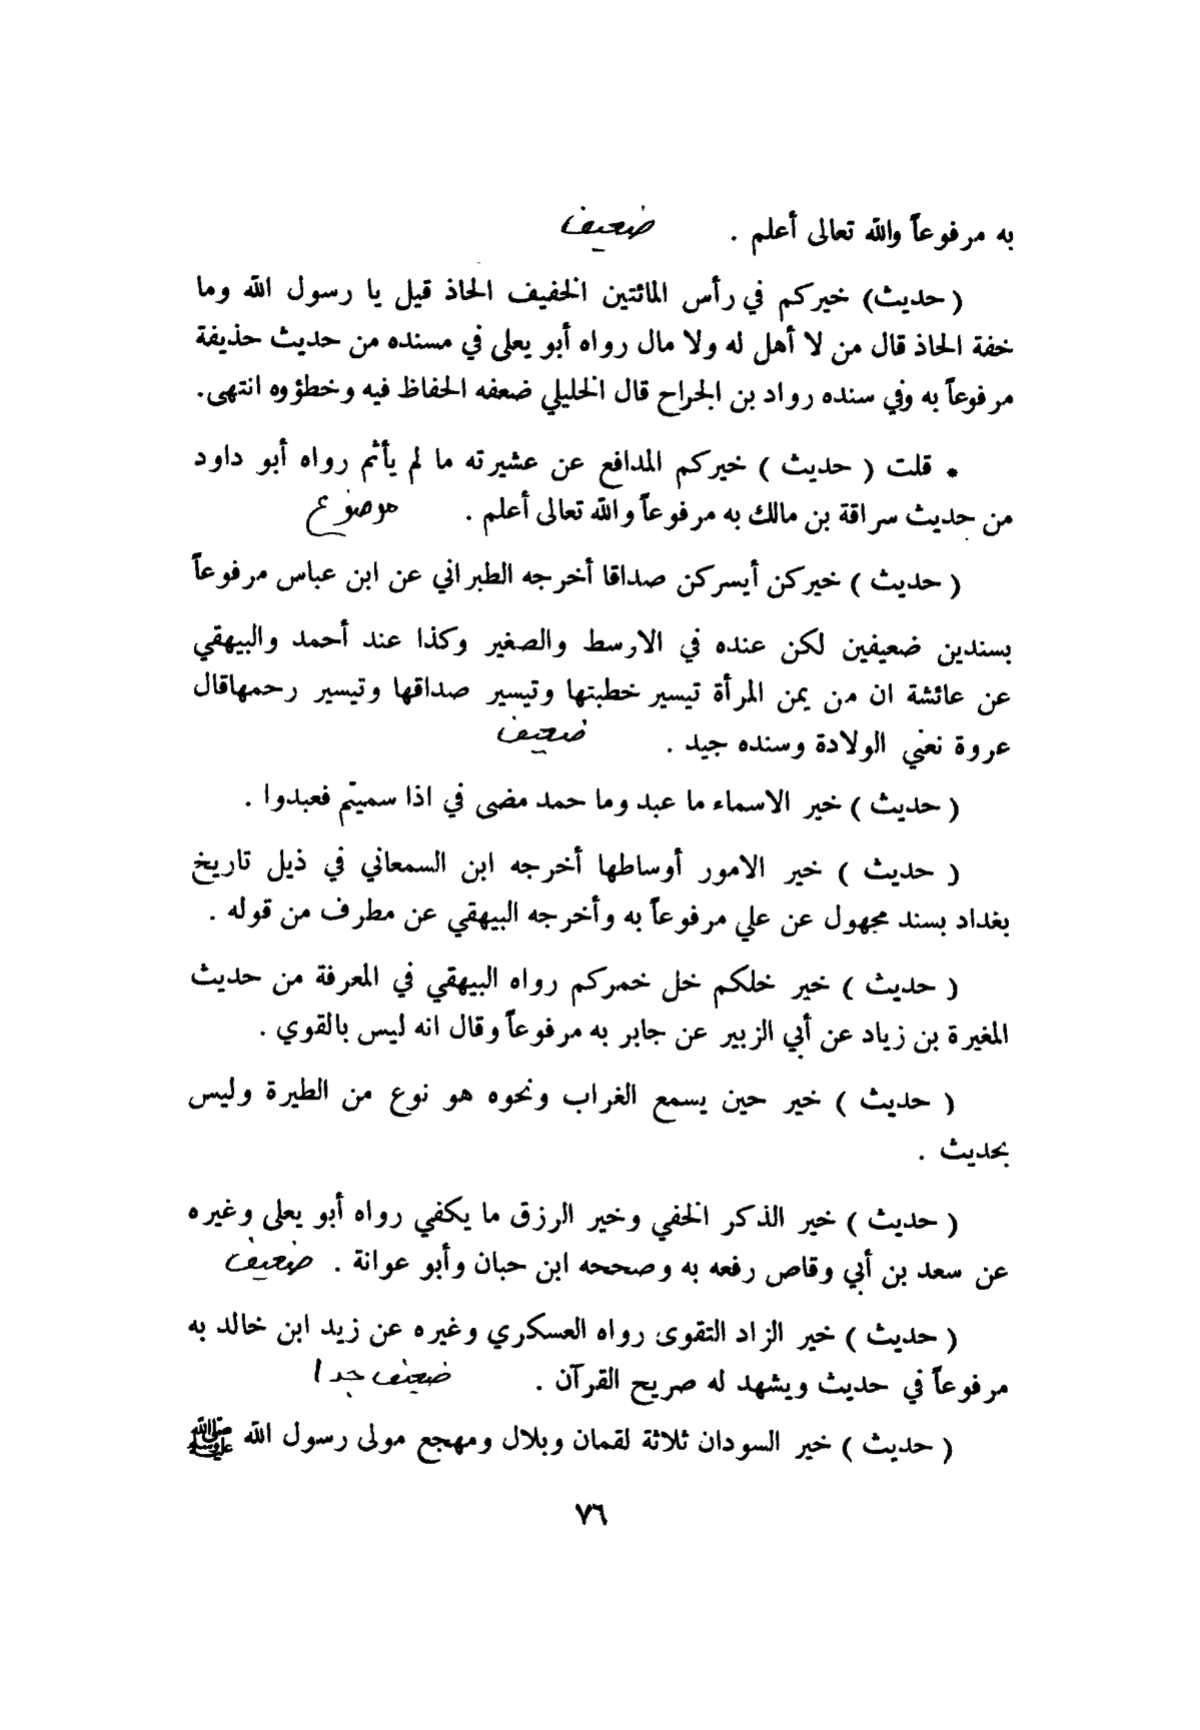 به مرفوعاً والله تعالى أعلم . ضعيف
( حديث) خيركم في رأس المائتين الخفيف الحاذ قيل يا رسول الله وما
خفة الحاذ قال من لا أهل له ولا مال رواه أبو يعلى في مسنده من حديث حذيفة
مرفوعاً به وفي سنده رواد بن الجراح قال الخليلي ضعفه الحفاظ فيه وخطؤوه انتهى.
* قلت ( حديث ) خيركم المدافع عن عشيرته ما لم يأثم رواه أبو داود
من حديث سراقة بن مالك به مرفوعاً والله تعالى أعلم . موضوع
( حديث ) خيركن أيسركن صداقا أخرجه الطبراني عن ابن عباس مرفوعاً
بسندين ضعيفين لكن عنده في الارسط والصغير وكذا عند أحمد والبيهقي
عن عائشة ان من يمن المرأة تيسير خطبتها وتيسير صداقها وتيسير رحمهاقال
عروة نعني الولادة وسنده جيد . ضعيف
( حديث ) خير الاسماء ما عبد وما حمد مضى في اذا سميتم فعبدوا .
( حديث ) خير الامور أوساطها أخرجه ابن السمعاني في ذيل تاريخ
بغداد بسند مجهول عن علي مرفوعاً به وأخرجه البيهقي عن مطرف من قوله .
( حديث ) خير خلكم خل خمركم رواه البيهقي في المعرفة من حديث
المغيرة بن زياد عن أبي الزبير عن جابر به مرفوعاً وقال انه ليس بالقوي .
( حديث ) خير حين يسمع الغراب ونحوه هو نوع من الطيرة وليس
بحديث .
( حديث ) خير الذكر الخفي وخير الرزق ما يكفي رواه أبو يعلى وغيره
عن سعد بن أبي وقاص رفعه به وصححه ابن حبان وأبو عوانة . ضعيف
( حديث ) خير الزاد التقوى رواه العسكري وغيره عن زيد ابن خالد به
مرفوعاً في حديث ويشهد له صريح القرآن . ضعيف جدا
( حديث ) خير السودان ثلاثة لقمان وبلال ومهجع مولى رسول الله ﷺ
٧٦